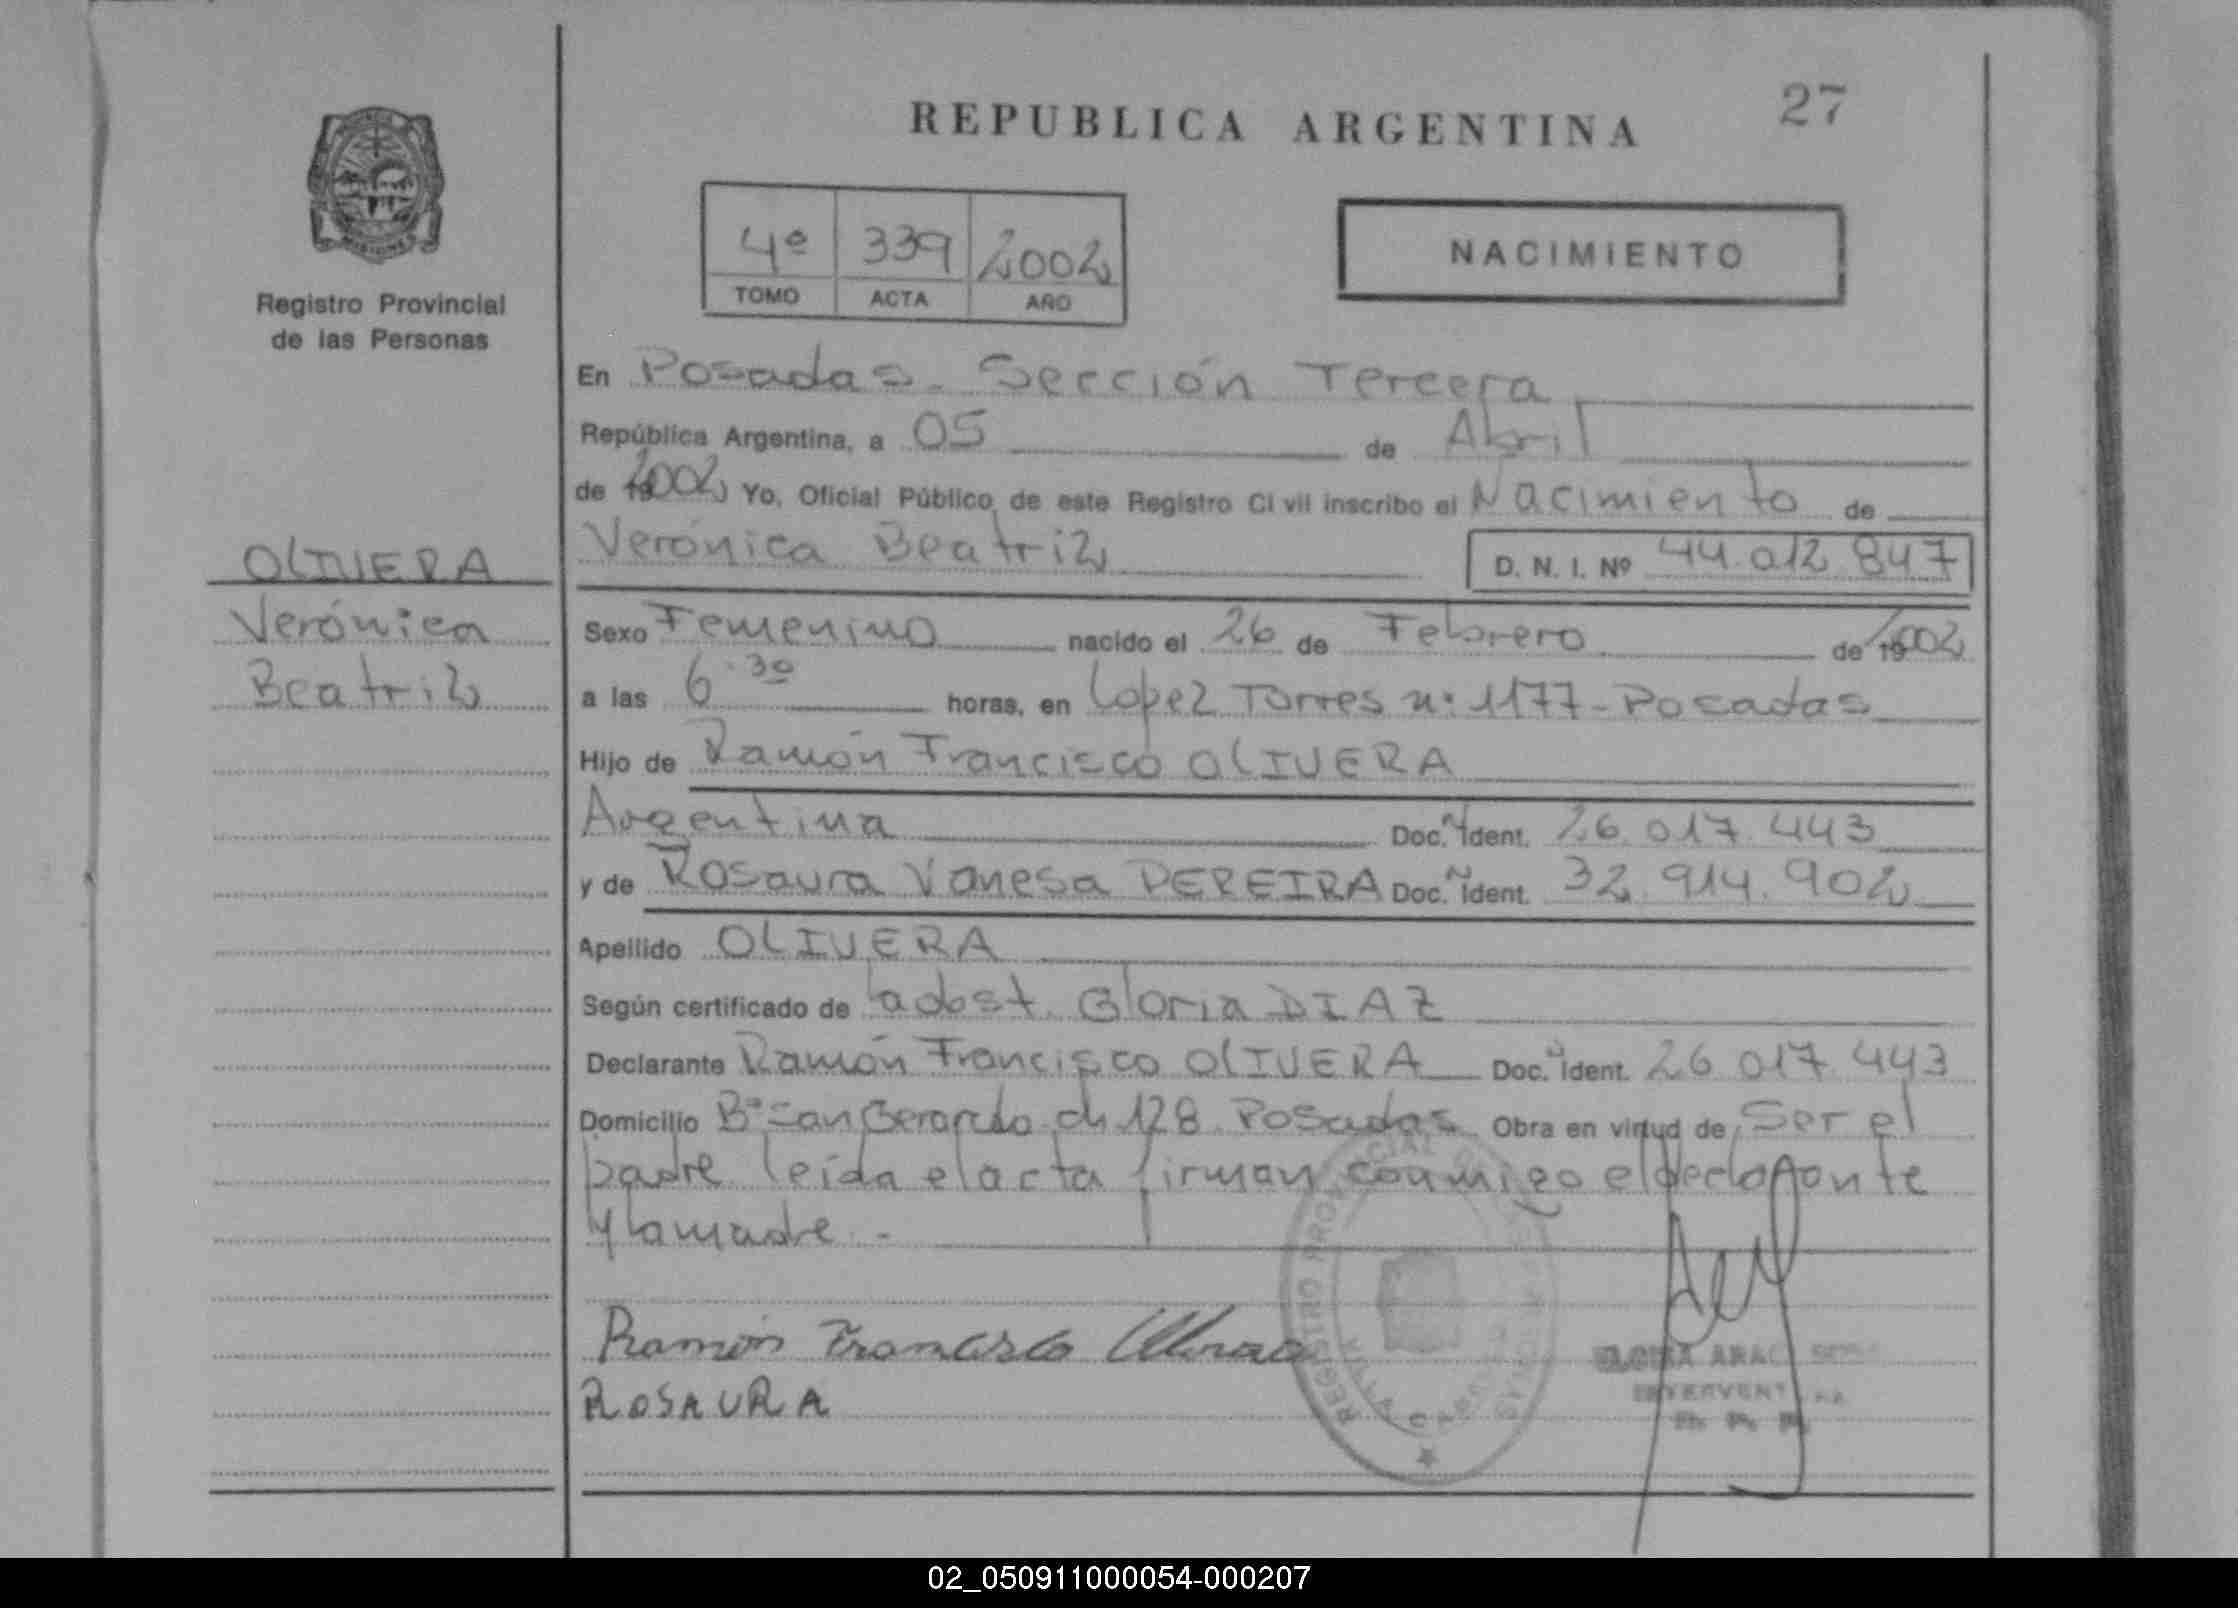 27
REPUBLICA ARGENTINA
4º 339 2002
TOMO ACTA AÑO
NACIMIENTO
Registro Provincial
de las Personas
En Posadas. Sección Tercera
República Argentina, a 05 de Abril
de 2002 Yo, Oficial Público de este Registro Civil inscribo el Nacimiento de
Verónica Beatriz D. N. I. Nº 44.012.847
OLIVERA
Verónica
Beatriz
Sexo Femenino nacido el 26 de Febrero de 2002
a las 6.30 horas, en Lopez Torres nº 1177-Posadas
Hijo de Ramón Francisco OLIVERA
Argentina Doc. N Ident. 26.017.443
y de Rosaura Vanesa PEREIRA Doc. N Ident. 32.914.902
Apellido OLIVERA
Según certificado de la obst. Gloria DIAZ
Declarante Ramón Francisco OLIVERA Doc. N Ident. 26.017.443
Domicilio Bº San Gerardo ch 128 Posadas Obra en virtud de Ser el
padre leída el acta firman conmigo el declarante
y la madre.-
Ramón Francisco
ROSAURA
REGISTRO PROVINCIAL
02_050911000054-000207